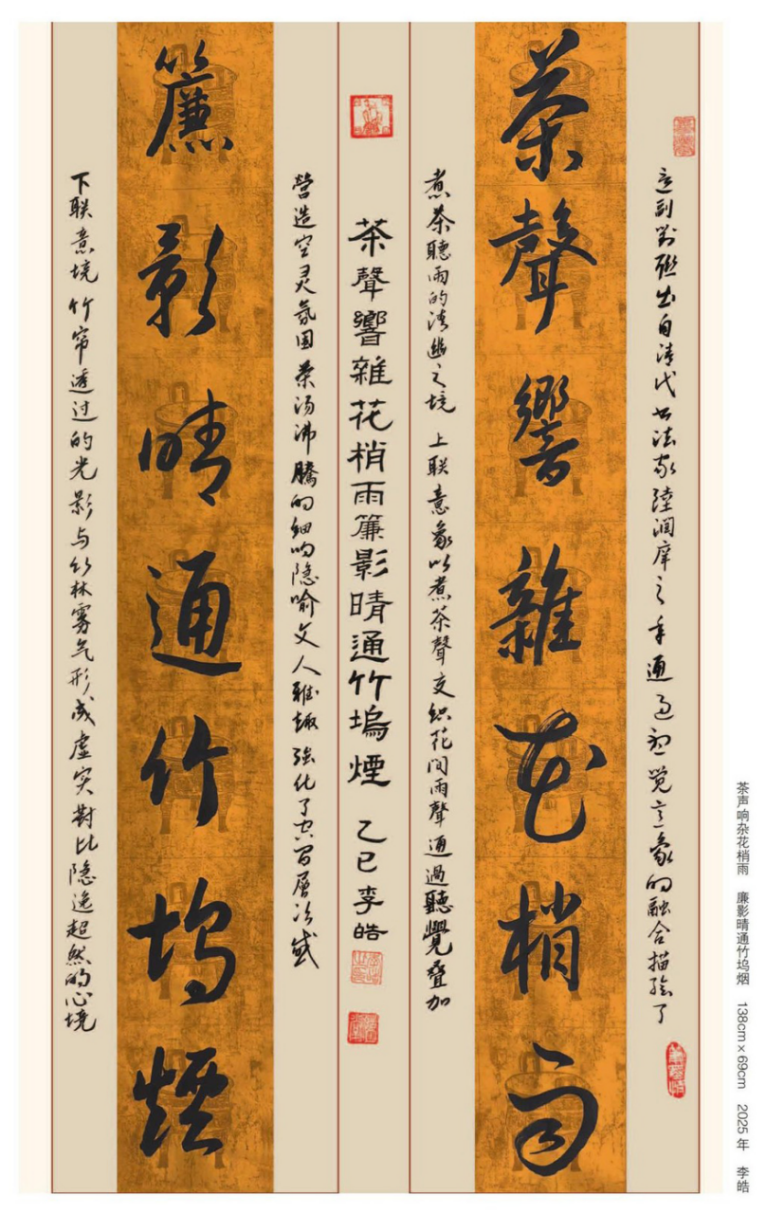 这副對联出自清代书法家陸潤庠之手通过视觉意象的融合描繪了
茶聲響雜花梢雨
煮茶聽雨的清幽之境 上联意象以煮茶聲交织花间雨聲通過聽覺叠加
茶聲響雜花梢雨簾影晴通竹塢煙 乙巳李皓
營造空灵氛围茶汤沸騰的细响隐喻文人雅趣强化了空间層次感
簾影晴通竹塢煙
下联意境竹帘透过的光影与竹林雾气形成虚实對比隐逸超然的心境
茶声响杂花梢雨 廉影晴通竹坞烟 138cm×69cm 2025年 李皓